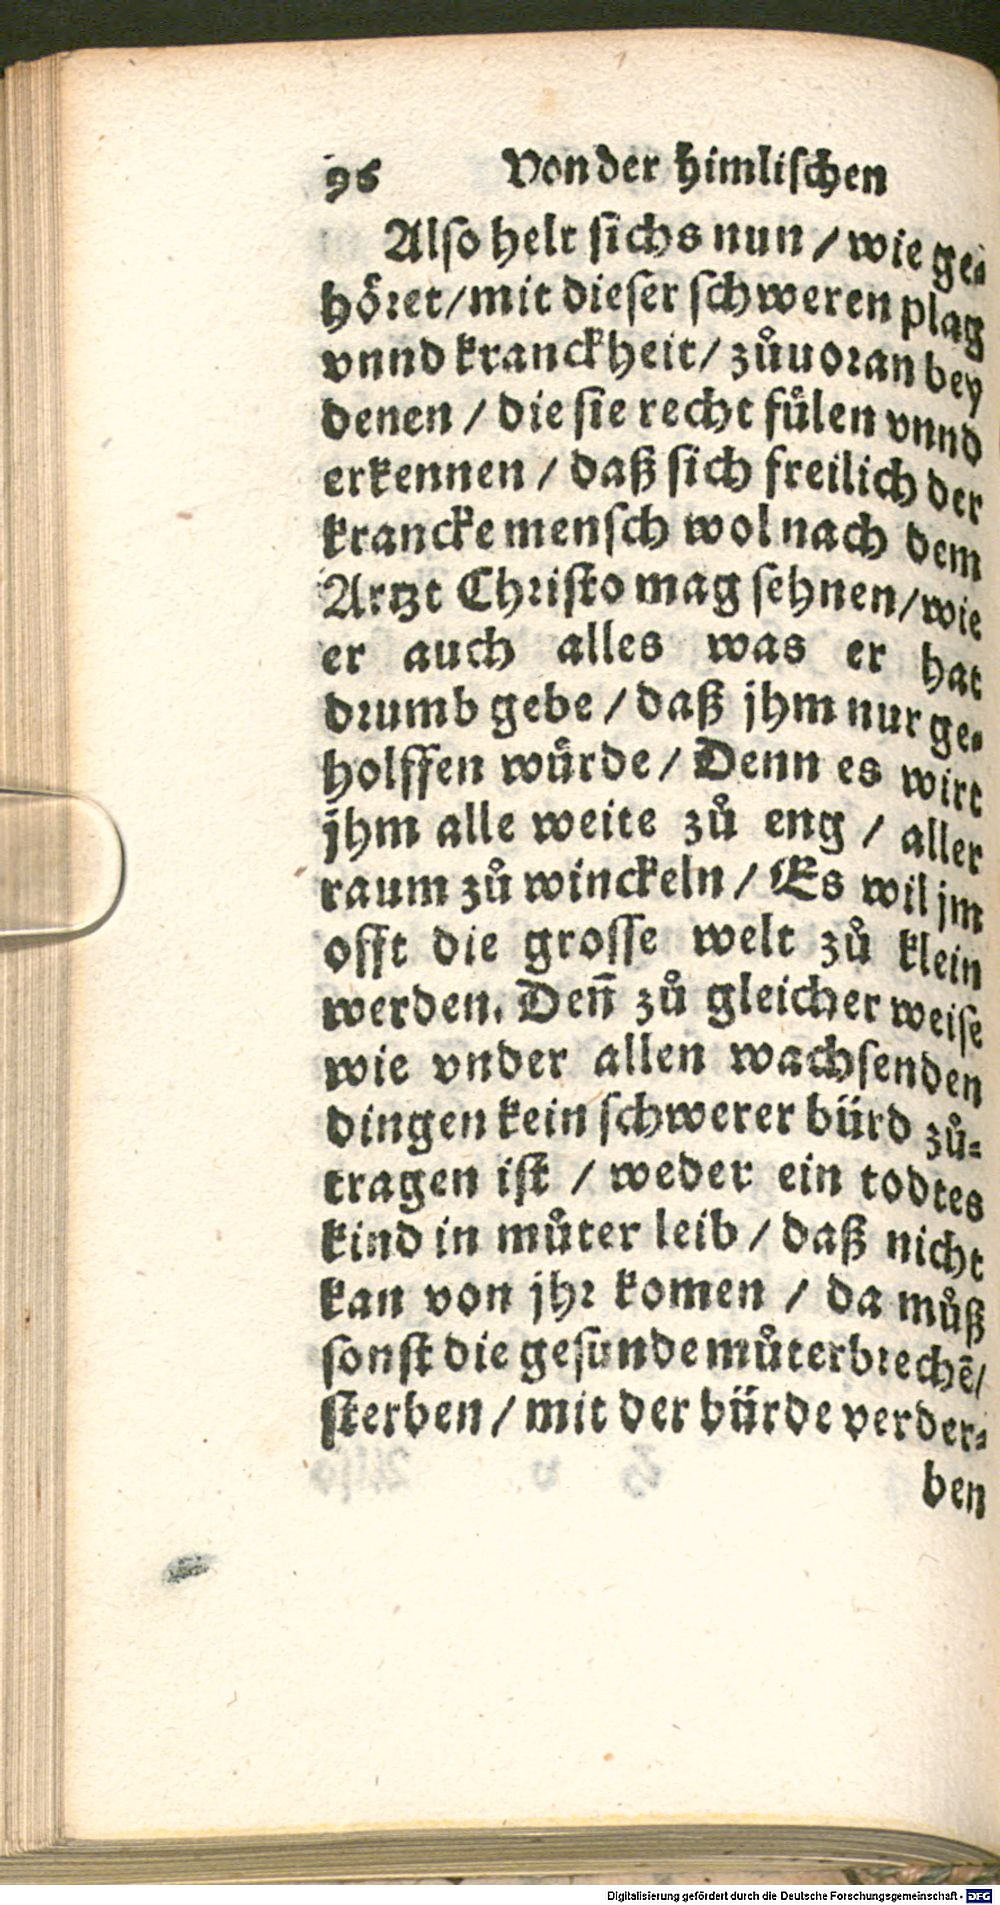 96 Von der himlischen
Also helt sichs nun / wie ge-
hoͤret / mit dieser schweren plag
vnnd kranckheit / zůuoran bey
denen / die sie recht fuͤlen vnnd
erkennen / daß sich freilich der
krancke mensch wol nach dem
Artzt Christo mag sehnen / wie
er auch alles was er hat
drumb gebe / daß jhm nur ge-
holffen wuͤrde / Denn es wirt
jhm alle weite zů eng / aller
raum zů winckeln / Es wil jm
offt die grosse welt zů klein
werden. Deñ zů gleicher weise
wie vnder allen wachsenden
dingen kein schwerer bürd zů-
tragen ist / weder ein todtes
kind in můter leib / daß nicht
kan von jhr komen / da můß
sonst die gesunde můter brechẽ /
sterben / mit der bürde verder-
ben
Digitalisierung gefördert durch die Deutsche Forschungsgemeinschaft - DFG